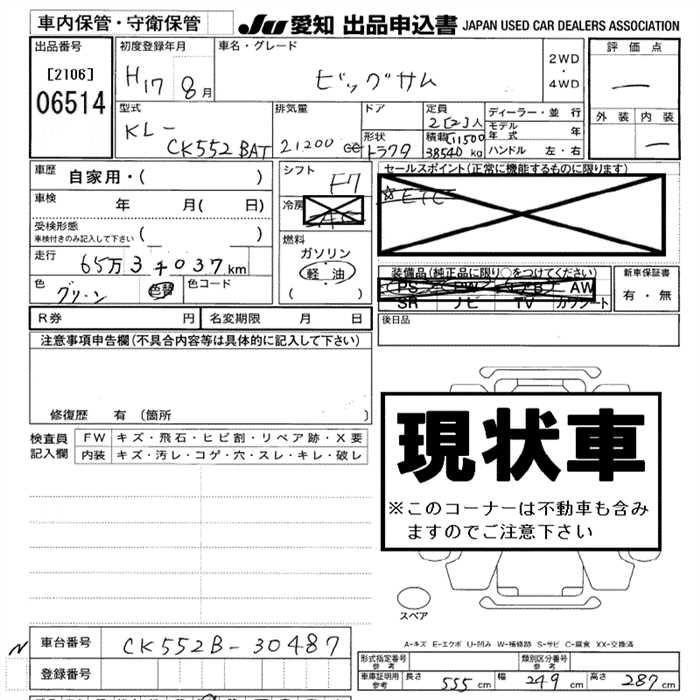 車内保管・守衛保管 JU 愛知 出品申込書 JAPAN USED CAR DEALERS ASSOCIATION
出品番号 初度登録年月 車名・グレード 評 価 点
[2106] H17 8月 ビッグサム 2WD・4WD —
06514 型式 排気量 ドア 定員 2[2]人 ディーラー・並 行 外 装 内 装
KL- 形状 積載 [11500 モデル年式 年
CK552BAT 21200 cc トラクタ 38540 kg ハンドル 左・右 —
車歴 自家用・( ) シフト F7 セールスポイント(正常に機能するものに限ります)
車検 年 月( 日) 冷房 ☆ETC
受検形態 車検付きのみ記入して下さい ( ) 燃料
走行 65万3千037km ガソリン
色 グリーン 色替 色コード 軽・油 ( )
装備品(純正品に限り○をつけてください) 新車保証書
PS PW エアB AW 有・無
SR ナビ TV カワシート
R券 円 名変期限 月 日 後日品
注意事項申告欄(不具合内容等は具体的に記入して下さい)
修復歴 有 (箇所 )
検査員 記入欄 FW キズ・飛石・ヒビ割・リペア跡・X要
内装 キズ・汚レ・コゲ・穴・スレ・キレ・破レ
現状車
※このコーナーは不動車も含み
ますのでご注意下さい
スペア
A-キズ E-エクボ U-凹み W-補修跡 S-サビ C-腐食 XX-交換済
N 車台番号 CK552B-30487
登録番号
形式指定番号 参考 類別区分番号 参考
車庫証明用 参考 長さ 555 cm 幅 249 cm 高さ 287 cm